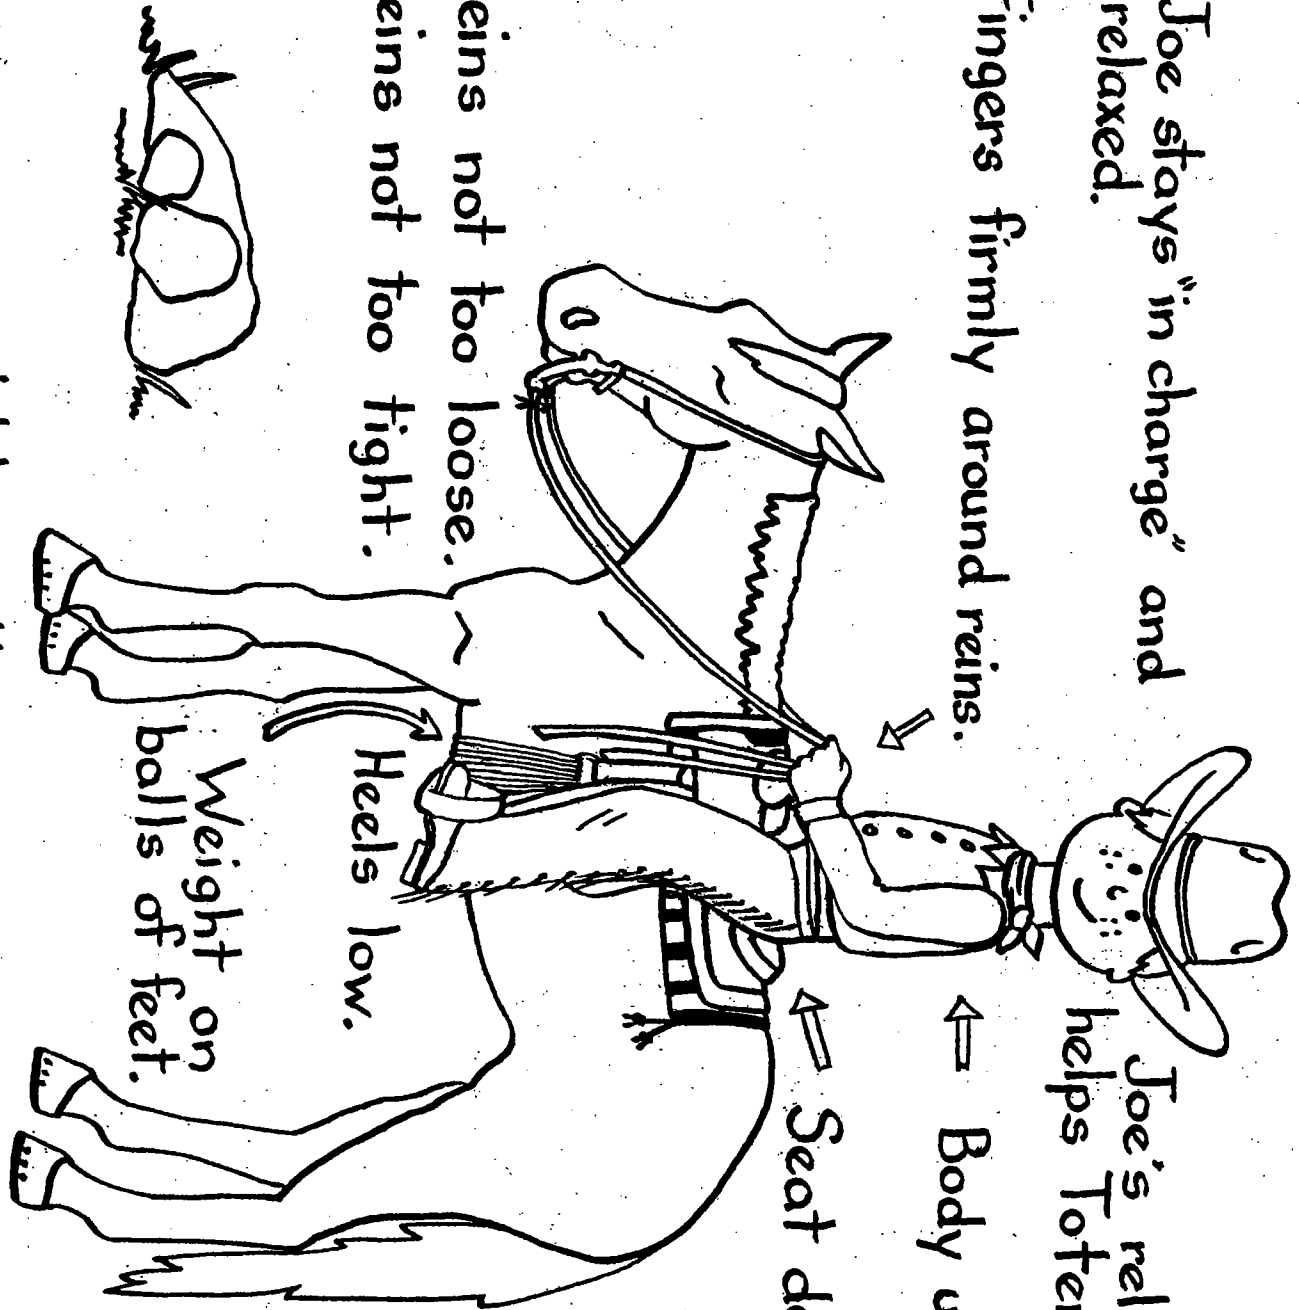 Joe stays "in charge" and
relaxed.
ingers firmly around reins.
eins not too loose.
eins not too tight.
Joe's rel
helps Toter
Body u
Seat do
Heels low.
Weight on
balls of feet.